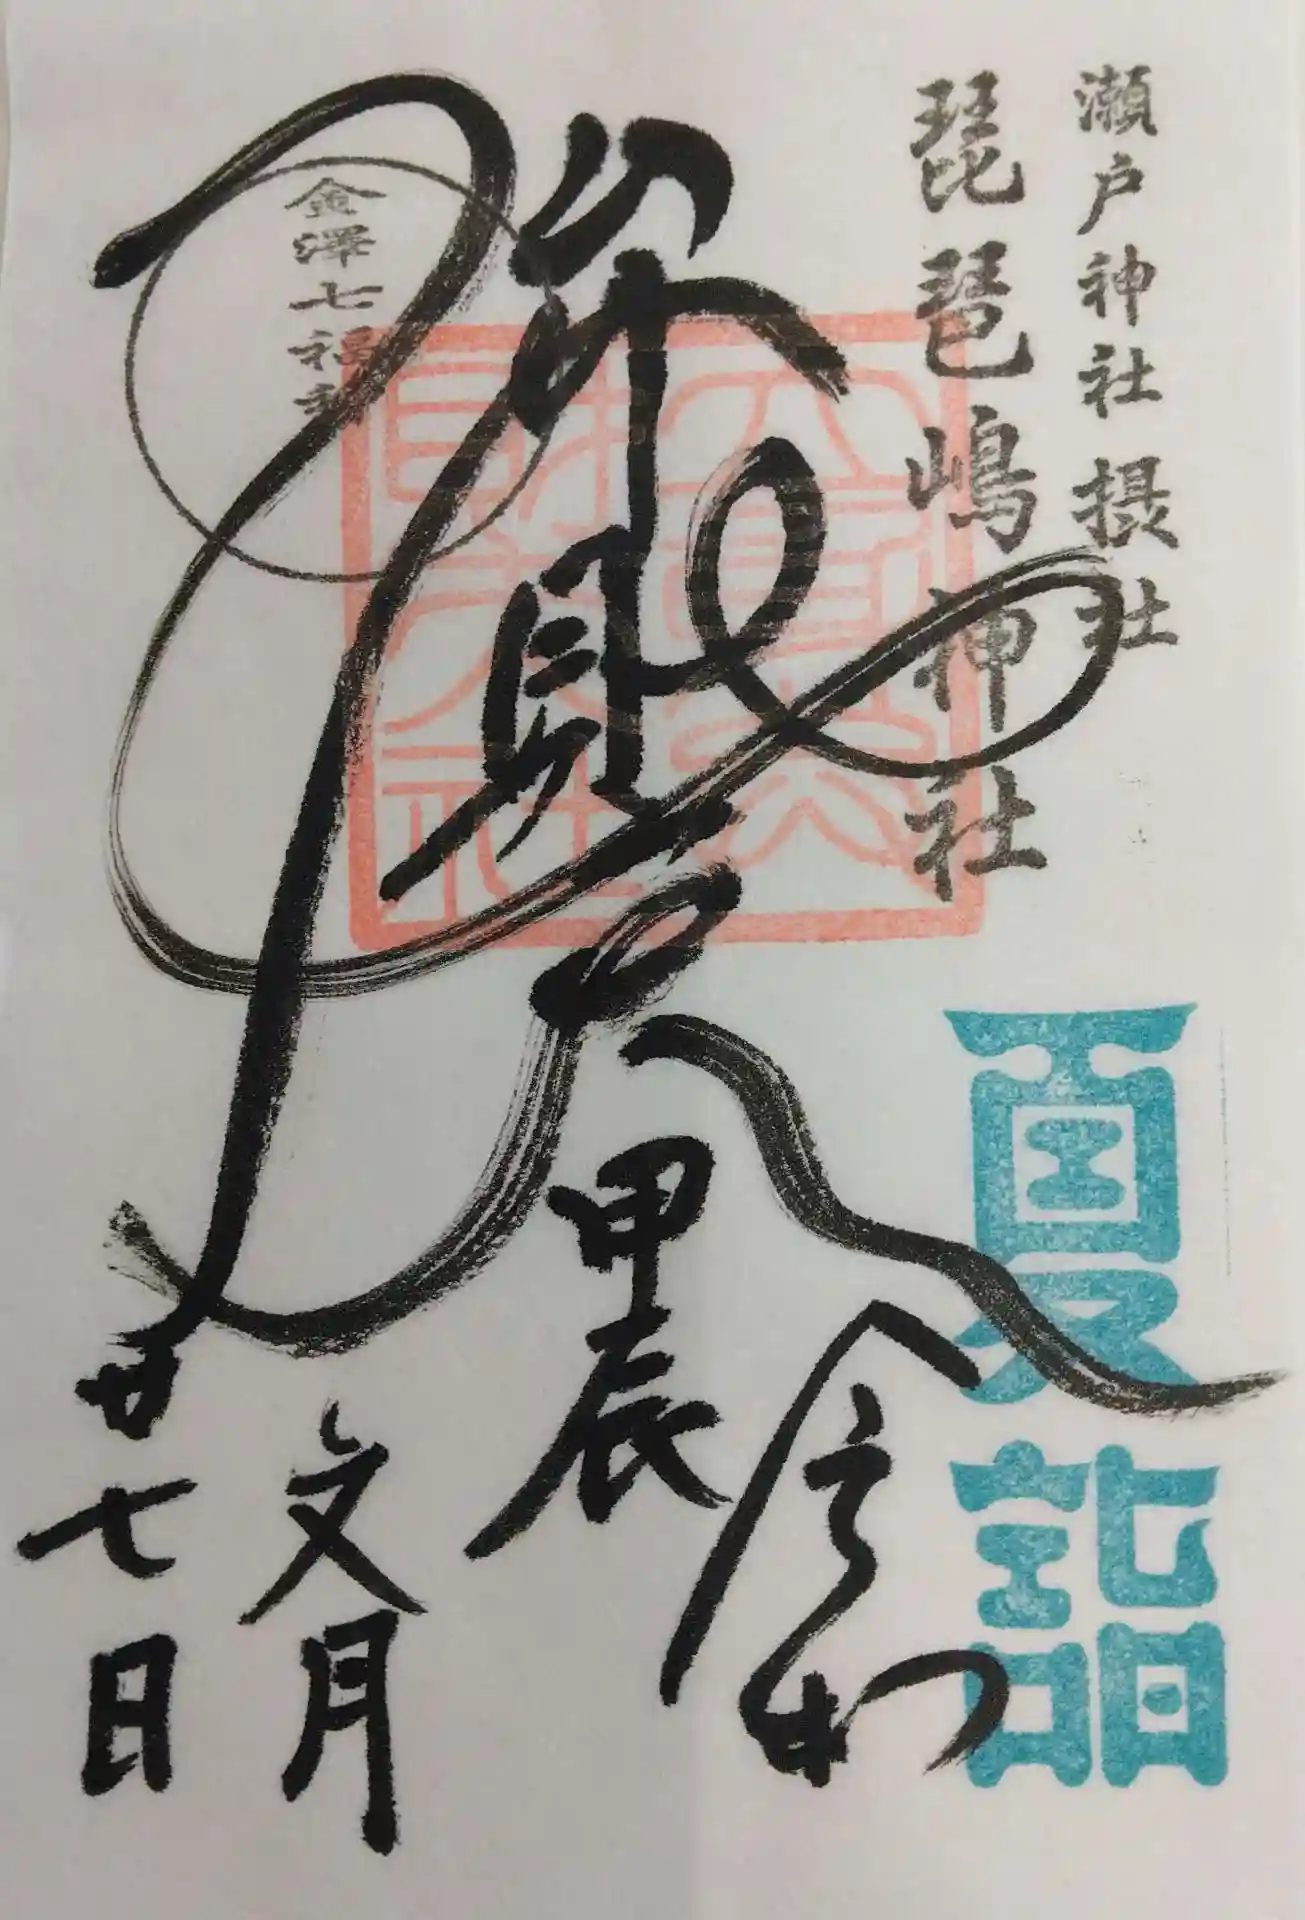 瀬戸神社摂社
琵琶嶋神社
夏詣
令和
甲辰
文月
廿七日
金澤七福神